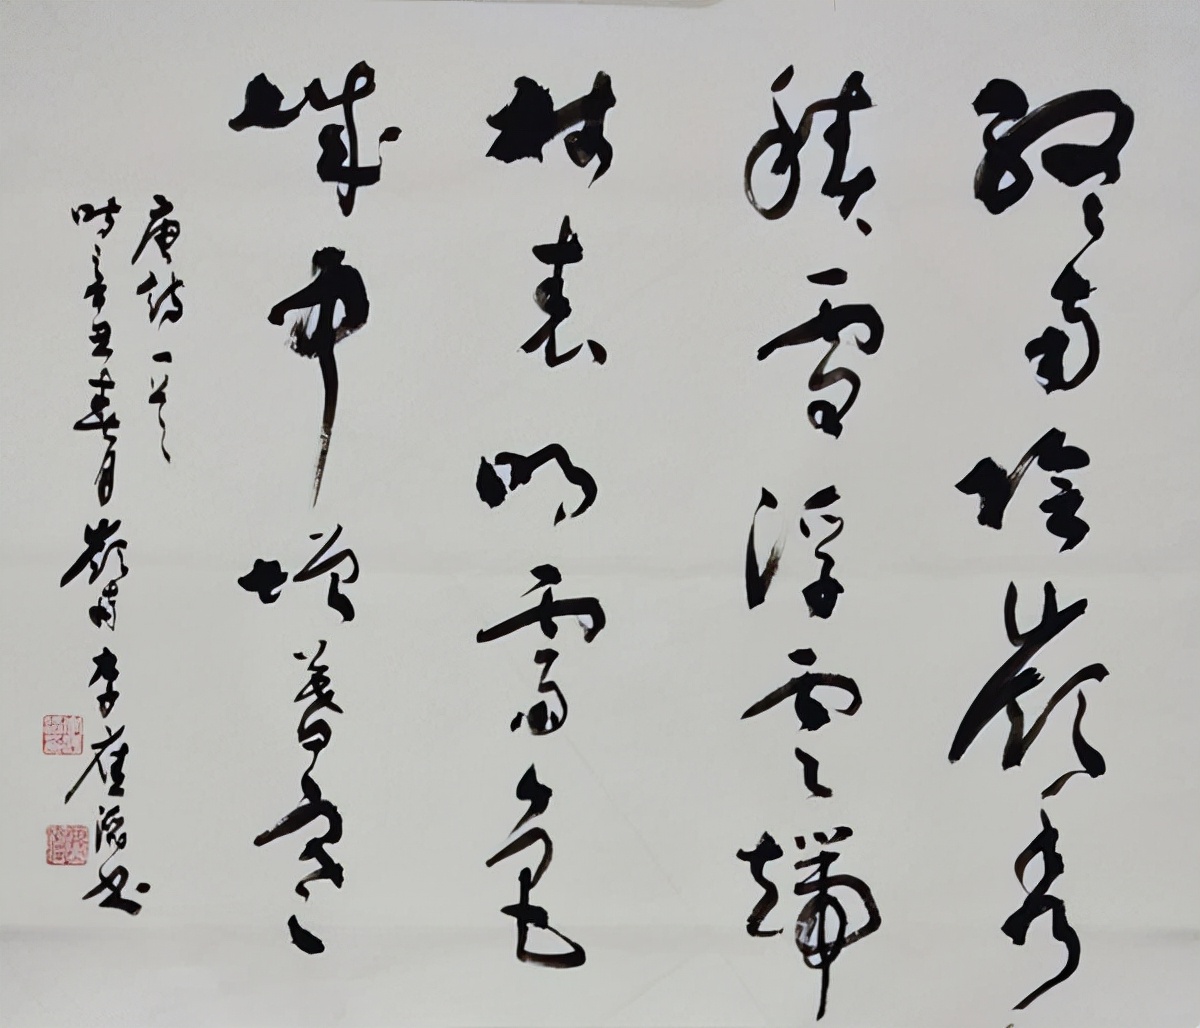 終南陰嶺秀
積雪浮雲端
林表明霽色
城中增暮寒
唐詩一首
時辛丑春月嶺南李應滔书